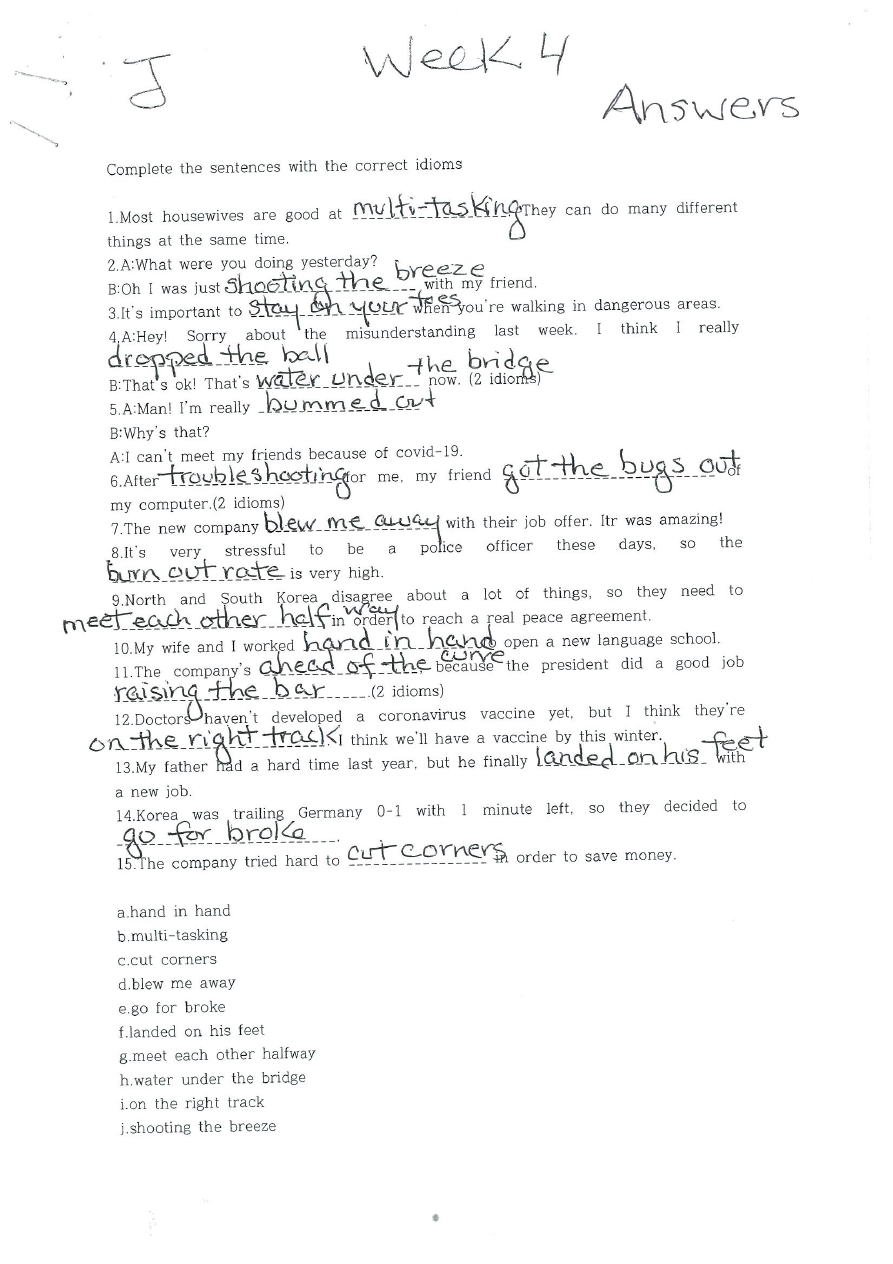 J
Week 4
Answers
Complete the sentences with the correct idioms
1.Most housewives are good at multi-tasking They can do many different
things at the same time.
2.A:What were you doing yesterday?
B:Oh I was just shooting the breeze with my friend.
3.It's important to stay on your toes when you're walking in dangerous areas.
4.A:Hey! Sorry about the misunderstanding last week. I think I really
dropped the ball
B:That's ok! That's water under the bridge now. (2 idioms)
5.A:Man! I'm really bummed out
B:Why's that?
A:I can't meet my friends because of covid-19.
6.After troubleshooting for me, my friend got the bugs out of
my computer.(2 idioms)
7.The new company blew me away with their job offer. Itr was amazing!
8.It's very stressful to be a police officer these days, so the
burn out rate is very high.
9.North and South Korea disagree about a lot of things, so they need to
meet each other half way in order to reach a real peace agreement.
10.My wife and I worked hand in hand open a new language school.
11.The company's ahead of the curve because the president did a good job
raising the bar .(2 idioms)
12.Doctors haven't developed a coronavirus vaccine yet, but I think they're
on the right track I think we'll have a vaccine by this winter.
13.My father had a hard time last year, but he finally landed on his feet with
a new job.
14.Korea was trailing Germany 0-1 with 1 minute left, so they decided to
go for broke .
15.The company tried hard to cut corners in order to save money.
a.hand in hand
b.multi-tasking
c.cut corners
d.blew me away
e.go for broke
f.landed on his feet
g.meet each other halfway
h.water under the bridge
i.on the right track
j.shooting the breeze